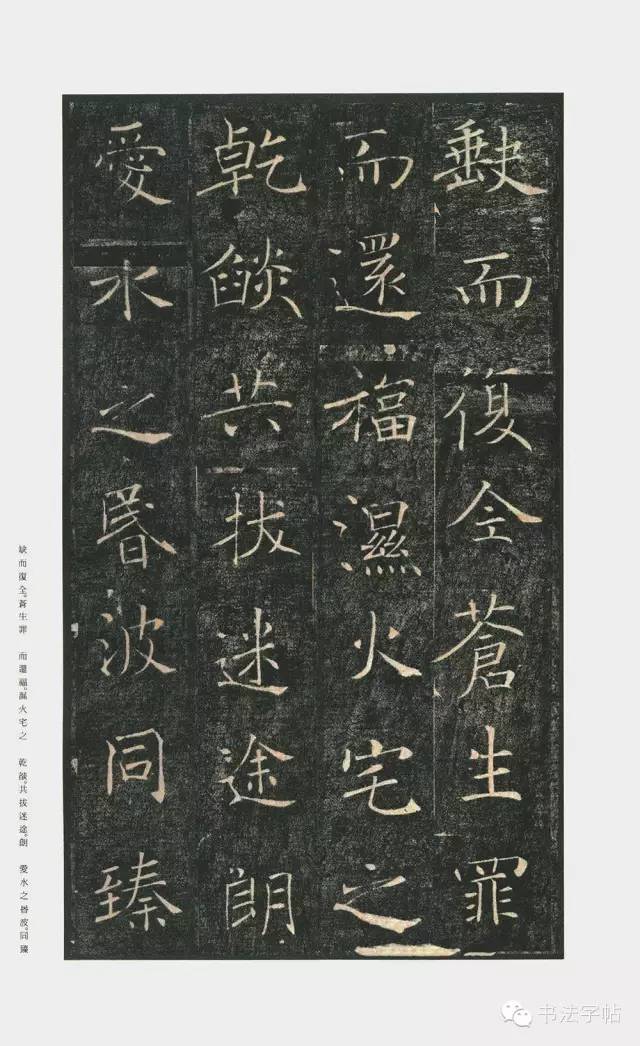 缺而復全蒼生罪
而還福濕火宅之
乾燄共拔迷途朗
愛水之昏波同臻
缺而復全。蒼生罪　而還福。濕火宅之　乾燄。共拔迷途。朗　愛水之昏波。同臻
书法字帖